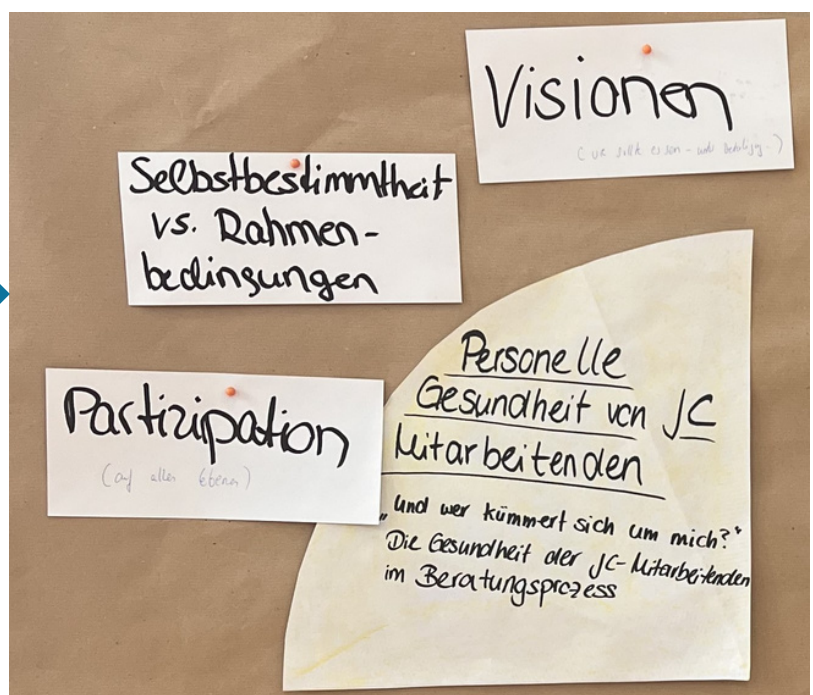 Visionen
Selbstbestimmtheit
vs. Rahmen-
bedingungen
Partizipation
(auf allen Ebenen)
Personelle
Gesundheit von JC
Mitarbeitenden
„Und wer kümmert sich um mich?“
Die Gesundheit der JC-Mitarbeitenden
im Beratungsprozess